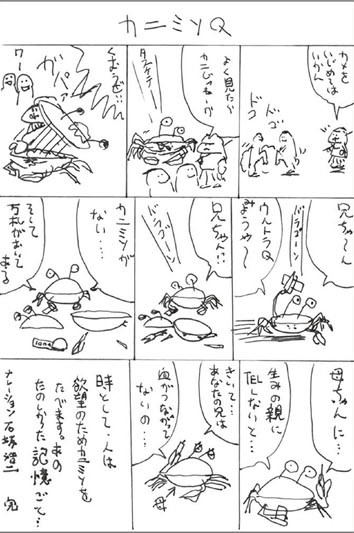 カニミソQ
カメを
いじめては
いかん
ドゴ
ドク
よく見たら
カニじゃねーか
タスケテー
くらうぞ…
ガ
パァ
ワー
兄ちゃ〜ん
バラゴーン
ウルトラQ
みようや〜
兄ちゃん!!
バラゴーン
カニミソが
ない…
そして
万札がおいて
ある
10000
母ちゃんに…
生みの親に
TELしないと…
きいて…
あなたの兄は
血がつながって
ないの…
母
時として、人は
欲望のためカニミソを
たべます。あの
たのしかった記憶ごと…
ナレーション 石坂浩二 完